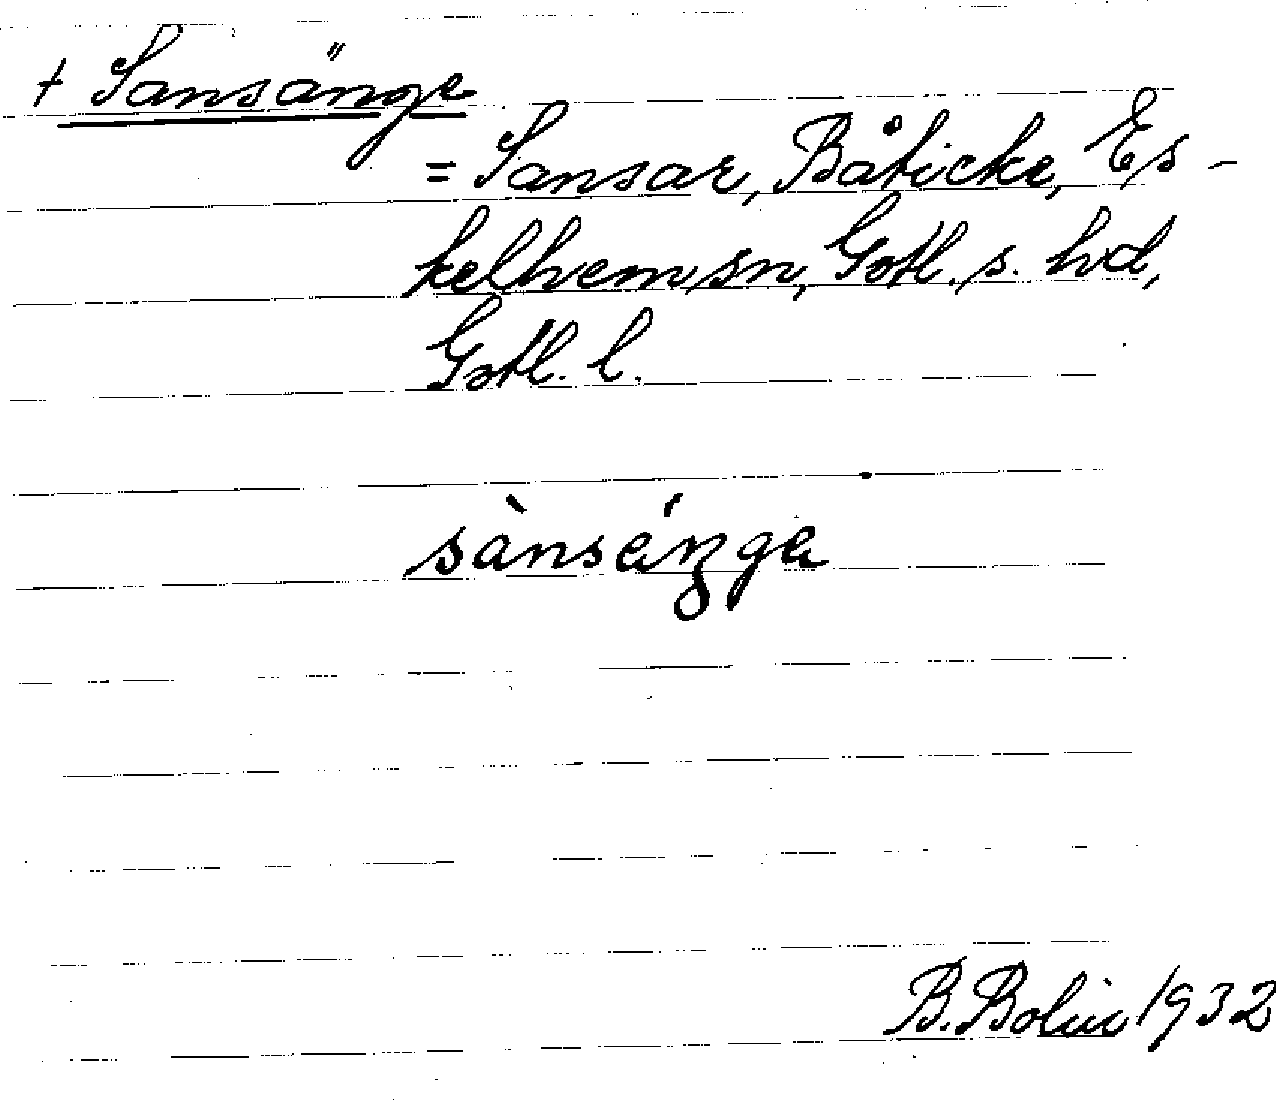 + Sansänge
= Sansar, Båticke, Es-
kelhem sn, Gotl. s. hd,
Gotl. l.
sànsáŋga
B. Bolin 1932